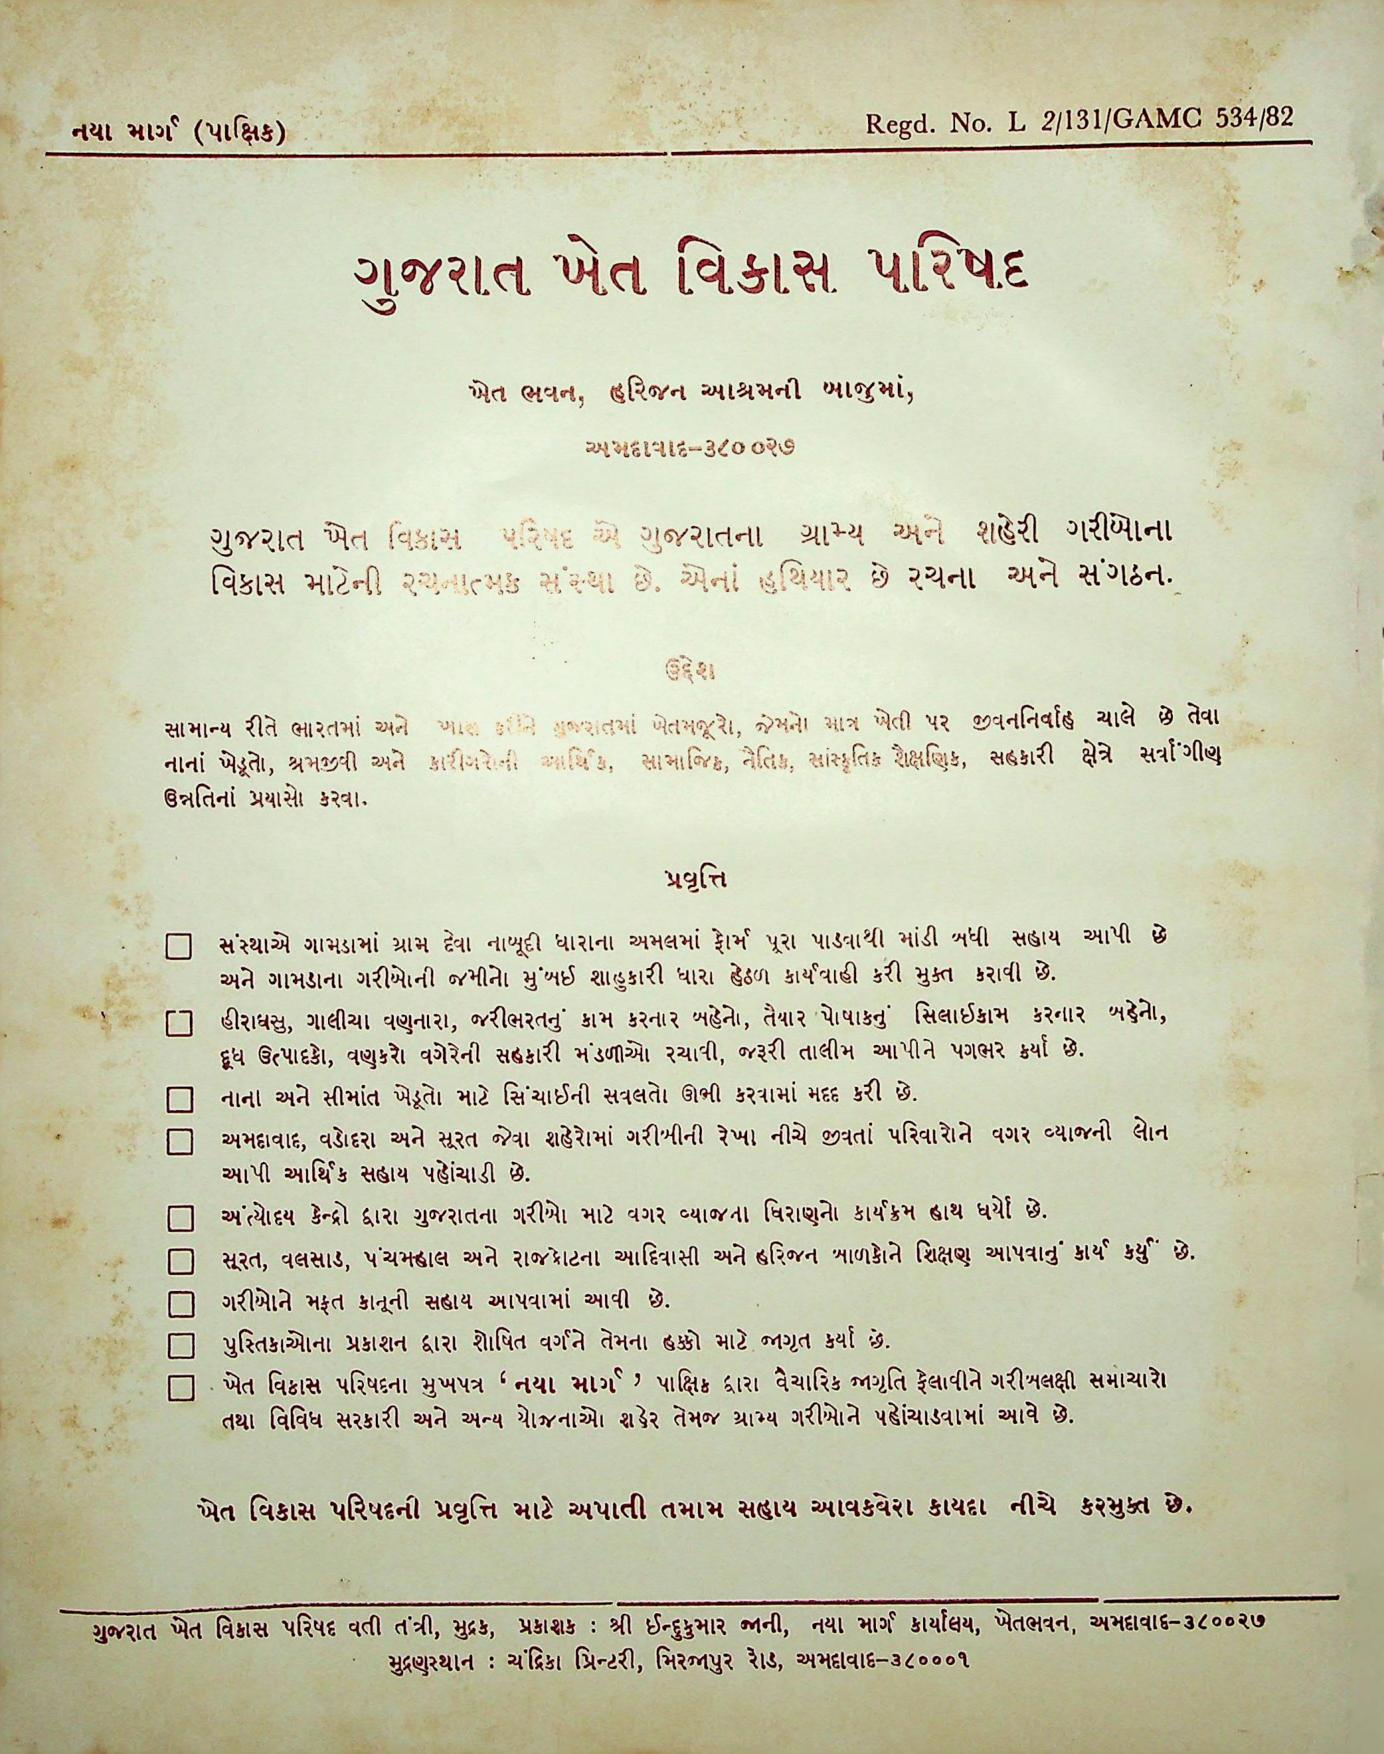 નયા માર્ગ (પાક્ષિક)
Regd. No. L 2/131/GAMC 534/82
ગુજરાત ખેત વિકાસ પરિષદ
ખેત ભવન, હરિજન આશ્રમની બાજુમાં,
અમદાવાદ-૩૮૦૦૨૭
ગુજરાત ખેત વિકાસ પરિષદ એ ગુજરાતના ગ્રામ્ય અને શહેરી ગરીબોના
વિકાસ માટેની રચનાત્મક સંસ્થા છે. એનાં હથિયાર છે રચના અને સંગઠન.
ઉદ્દેશ
સામાન્ય રીતે ભારતમાં અને ખાસ કરીને ગુજરાતમાં ખેતમજૂરો, જેમનો માત્ર ખેતી પર જીવનનિર્વાહ ચાલે છે તેવા
નાનાં ખેડૂતો, શ્રમજીવી અને કારીગરોની આર્થિક, સામાજિક, નૈતિક, સાંસ્કૃતિક શૈક્ષણિક, સહકારી ક્ષેત્રે સર્વાંગીણ
ઉન્નતિનાં પ્રયાસો કરવા.
પ્રવૃત્તિ
સંસ્થાએ ગામડામાં ગ્રામ દેવા નાબૂદી ધારાના અમલમાં ફોર્મ પૂરા પાડવાથી માંડી બધી સહાય આપી છે
અને ગામડાના ગરીબોની જમીનો મુંબઈ શાહુકારી ધારા હેઠળ કાર્યવાહી કરી મુક્ત કરાવી છે.
હીરાઘસુ, ગાલીચા વણનારા, જરીભરતનું કામ કરનાર બહેનો, તૈયાર પોષાકનું સિલાઈકામ કરનાર બહેનો,
દૂધ ઉત્પાદકો, વણકરો વગેરેની સહકારી મંડળીઓ રચાવી, જરૂરી તાલીમ આપીને પગભર કર્યા છે.
નાના અને સીમાંત ખેડૂતો માટે સિંચાઈની સવલતો ઊભી કરવામાં મદદ કરી છે.
અમદાવાદ, વડોદરા અને સૂરત જેવા શહેરોમાં ગરીબીની રેખા નીચે જીવતાં પરિવારોને વગર વ્યાજની લોન
આપી આર્થિક સહાય પહોંચાડી છે.
અંત્યોદય કેન્દ્રો દ્વારા ગુજરાતના ગરીબો માટે વગર વ્યાજના ધિરાણનો કાર્યક્રમ હાથ ધર્યો છે.
સૂરત, વલસાડ, પંચમહાલ અને રાજકોટના આદિવાસી અને હરિજન બાળકોને શિક્ષણ આપવાનું કાર્ય કર્યું છે.
ગરીબોને મફત કાનૂની સહાય આપવામાં આવી છે.
પુસ્તિકાઓના પ્રકાશન દ્વારા શોષિત વર્ગને તેમના હક્કો માટે જાગૃત કર્યા છે.
ખેત વિકાસ પરિષદના મુખપત્ર ‘નયા માર્ગ’ પાક્ષિક દ્વારા વૈચારિક જાગૃતિ ફેલાવીને ગરીબલક્ષી સમાચારો
તથા વિવિધ સરકારી અને અન્ય યોજનાઓ શહેર તેમજ ગ્રામ્ય ગરીબોને પહોંચાડવામાં આવે છે.
ખેત વિકાસ પરિષદની પ્રવૃત્તિ માટે અપાતી તમામ સહાય આવકવેરા કાયદા નીચે કરમુક્ત છે.
ગુજરાત ખેત વિકાસ પરિષદ વતી તંત્રી, મુદ્રક, પ્રકાશક : શ્રી ઈન્દુકુમાર જાની, નયા માર્ગ કાર્યાલય, ખેતભવન, અમદાવાદ-૩૮૦૦૨૭
મુદ્રણસ્થાન : ચંદ્રિકા પ્રિન્ટરી, મિરજાપુર રોડ, અમદાવાદ-૩૮૦૦૦૧